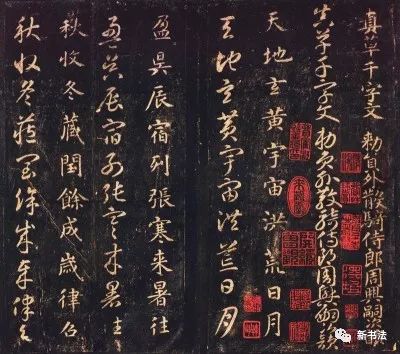 真草千字文 勅員外散騎侍郎周興嗣次韻
真草千字文 勅員外散騎侍郎周興嗣次韻
天地玄黃宇宙洪荒日月
天地玄黃宇宙洪荒日月
盈昃辰宿列張寒來暑往
盈昃辰宿列張寒來暑往
秋收冬藏閏餘成歲律呂
秋收冬藏閏餘成歲律呂
新书法